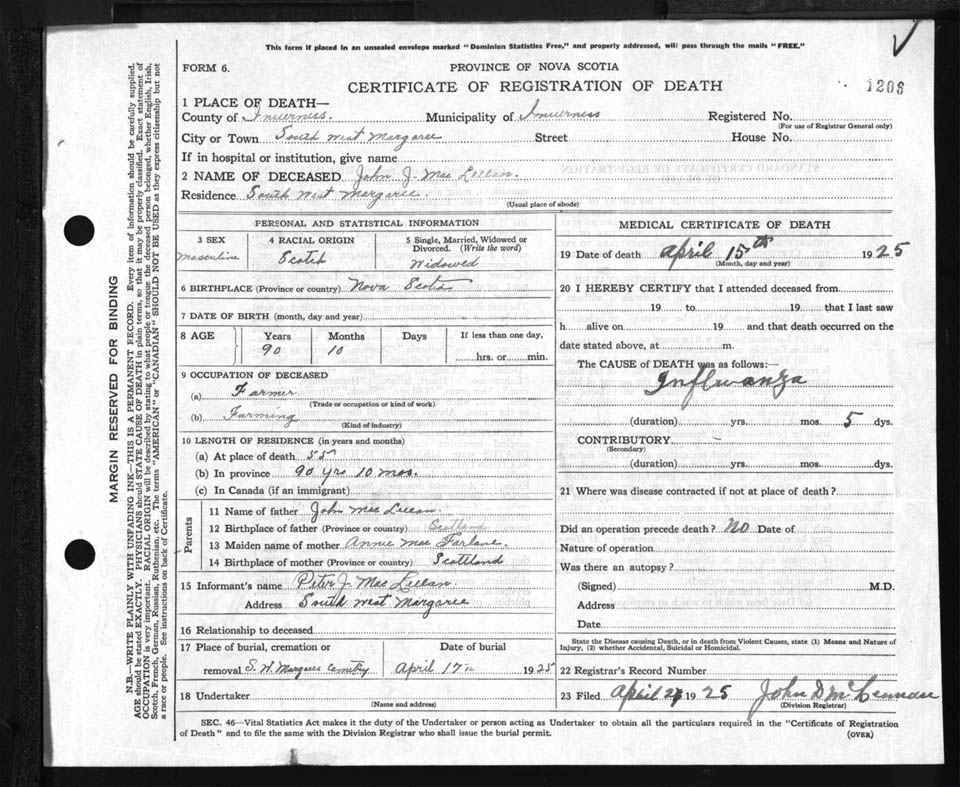 This form if placed in an unsealed envelope marked "Dominion Statistics Free," and properly addressed, will pass through the mails "FREE."
FORM 6.
PROVINCE OF NOVA SCOTIA
CERTIFICATE OF REGISTRATION OF DEATH
1208
1 PLACE OF DEATH—
County of Inverness. Municipality of Inverness Registered No.
(For use of Registrar General only)
City or Town South West Margaree Street House No.
If in hospital or institution, give name
2 NAME OF DECEASED John J. Mac Lellan.
Residence South West Margaree.
(Usual place of abode)
PERSONAL AND STATISTICAL INFORMATION
3 SEX
masculine
4 RACIAL ORIGIN
Scotch
5 Single, Married, Widowed or Divorced. (Write the word)
Widowed
6 BIRTHPLACE (Province or country) Nova Scotia
7 DATE OF BIRTH (month, day and year)
8 AGE Years Months Days If less than one day,
90 10 hrs. or min.
9 OCCUPATION OF DECEASED
(a) Farmer
(Trade or occupation or kind of work)
(b) Farming
(Kind of industry)
10 LENGTH OF RESIDENCE (in years and months)
(a) At place of death 55
(b) In province 90 yrs 10 mos.
(c) In Canada (if an immigrant)
Parents
11 Name of father John Mac Lellan.
12 Birthplace of father (Province or country) Scotland
13 Maiden name of mother Annie Mac Farlane.
14 Birthplace of mother (Province or country) Scottland
15 Informant's name Peter J. Mac Lellan.
Address South West Margaree
16 Relationship to deceased
17 Place of burial, cremation or Date of burial
removal S. W. Margaree Cemetry April 17th 1925
18 Undertaker
(Name and address)
MEDICAL CERTIFICATE OF DEATH
19 Date of death April 15th 1925
(Month, day and year)
20 I HEREBY CERTIFY that I attended deceased from
19 to 19 that I last saw
h alive on 19 and that death occurred on the
date stated above, at m.
The CAUSE OF DEATH was as follows:—
Inflwanza
(duration) yrs. mos. 5 dys.
CONTRIBUTORY –
(Secondary)
(duration) yrs. mos. dys.
21 Where was disease contracted if not at place of death?
Did an operation precede death? No Date of
Nature of operation
Was there an autopsy?
(Signed) M.D.
Address
Date
State the Disease causing Death, or in death from Violent Causes, state (1) Means and Nature of Injury, (2) whether Accidental, Suicidal or Homicidal.
22 Registrar's Record Number
23 Filed April 1925 John D McLennan
(Division Registrar)
SEC. 46—Vital Statistics Act makes it the duty of the Undertaker or person acting as Undertaker to obtain all the particulars required in the "Certificate of Registration
of Death" and to file the same with the Division Registrar who shall issue the burial permit.
(OVER)
MARGIN RESERVED FOR BINDING
N.B.—WRITE PLAINLY WITH UNFADING INK—THIS IS A PERMANENT RECORD. Every item of information should be carefully supplied.
AGE should be stated EXACTLY. PHYSICIANS should STATE CAUSE OF DEATH in plain terms, so that it may be properly classified. Exact statement of
OCCUPATION is very important. RACIAL ORIGIN will be described by stating to what people or tongue the deceased person belonged, whether English, Irish,
Scotch, French, German, Russian, Ruthenian, etc. The terms "AMERICAN" or "CANADIAN" SHOULD NOT BE USED as they express citizenship but not
a race or people. See instructions on back of Certificate.